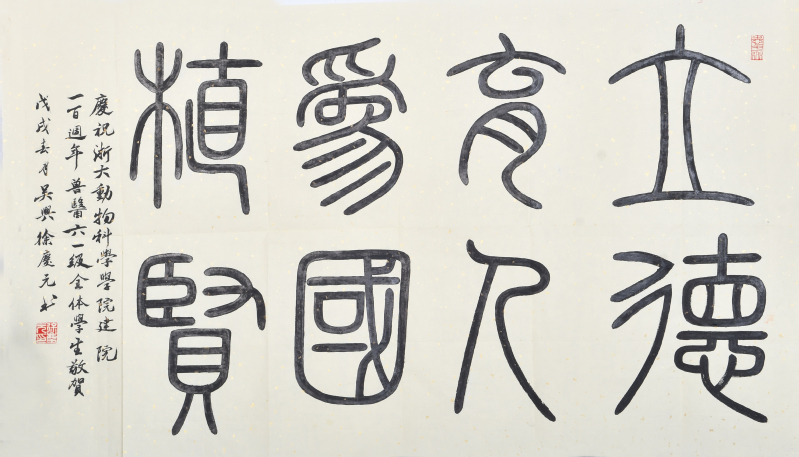 立德
育人
爲國
植賢
慶祝浙大動物科學學院建院
一百週年兽醫六一級全体學生敬賀
戊戌春月吴興徐慶元书